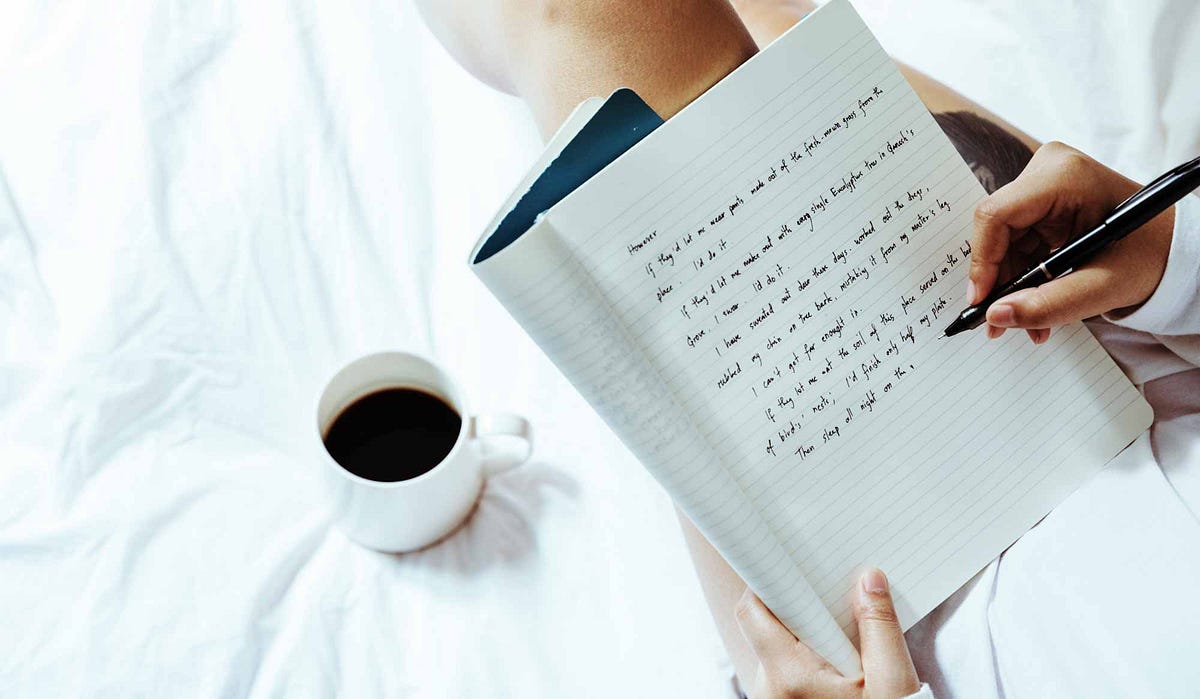 However
If they'd let me wear pants made out of the fresh-mown grass from the
place . I'd do it .
If they'd let me make out with every single Eucalyptus tree in
Grove . I swear . I'd do it .
I have sweated out dear these days . worked out the dregs ,
rubbed my chin on tree bark , mistaking it from my master's leg
I can't get far enough in .
If they let me eat the soil of this place served on the bed
of bird's nests , I'd finish only half my plate .
Then sleep all night on the ,